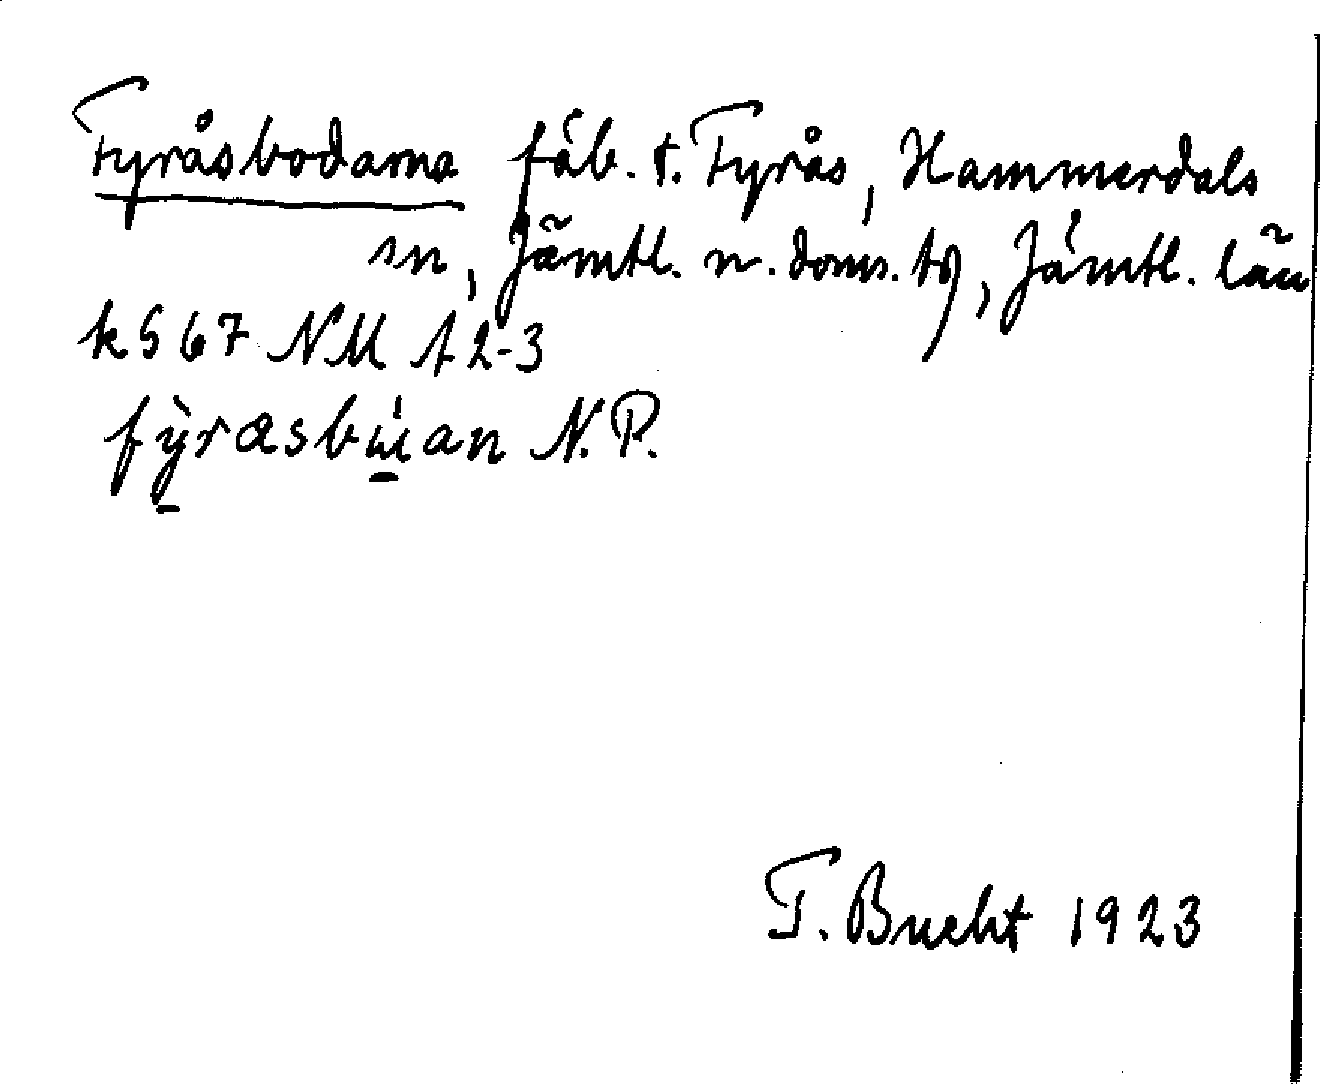 Fyråsbodarna fäb. t. Fyrås, Hammerdals
sn, Jämtl. n. doms. tg, Jämtl. län
k S 67 NM t 2-3
fỳrasbùan N.P.
T. Bucht 1923